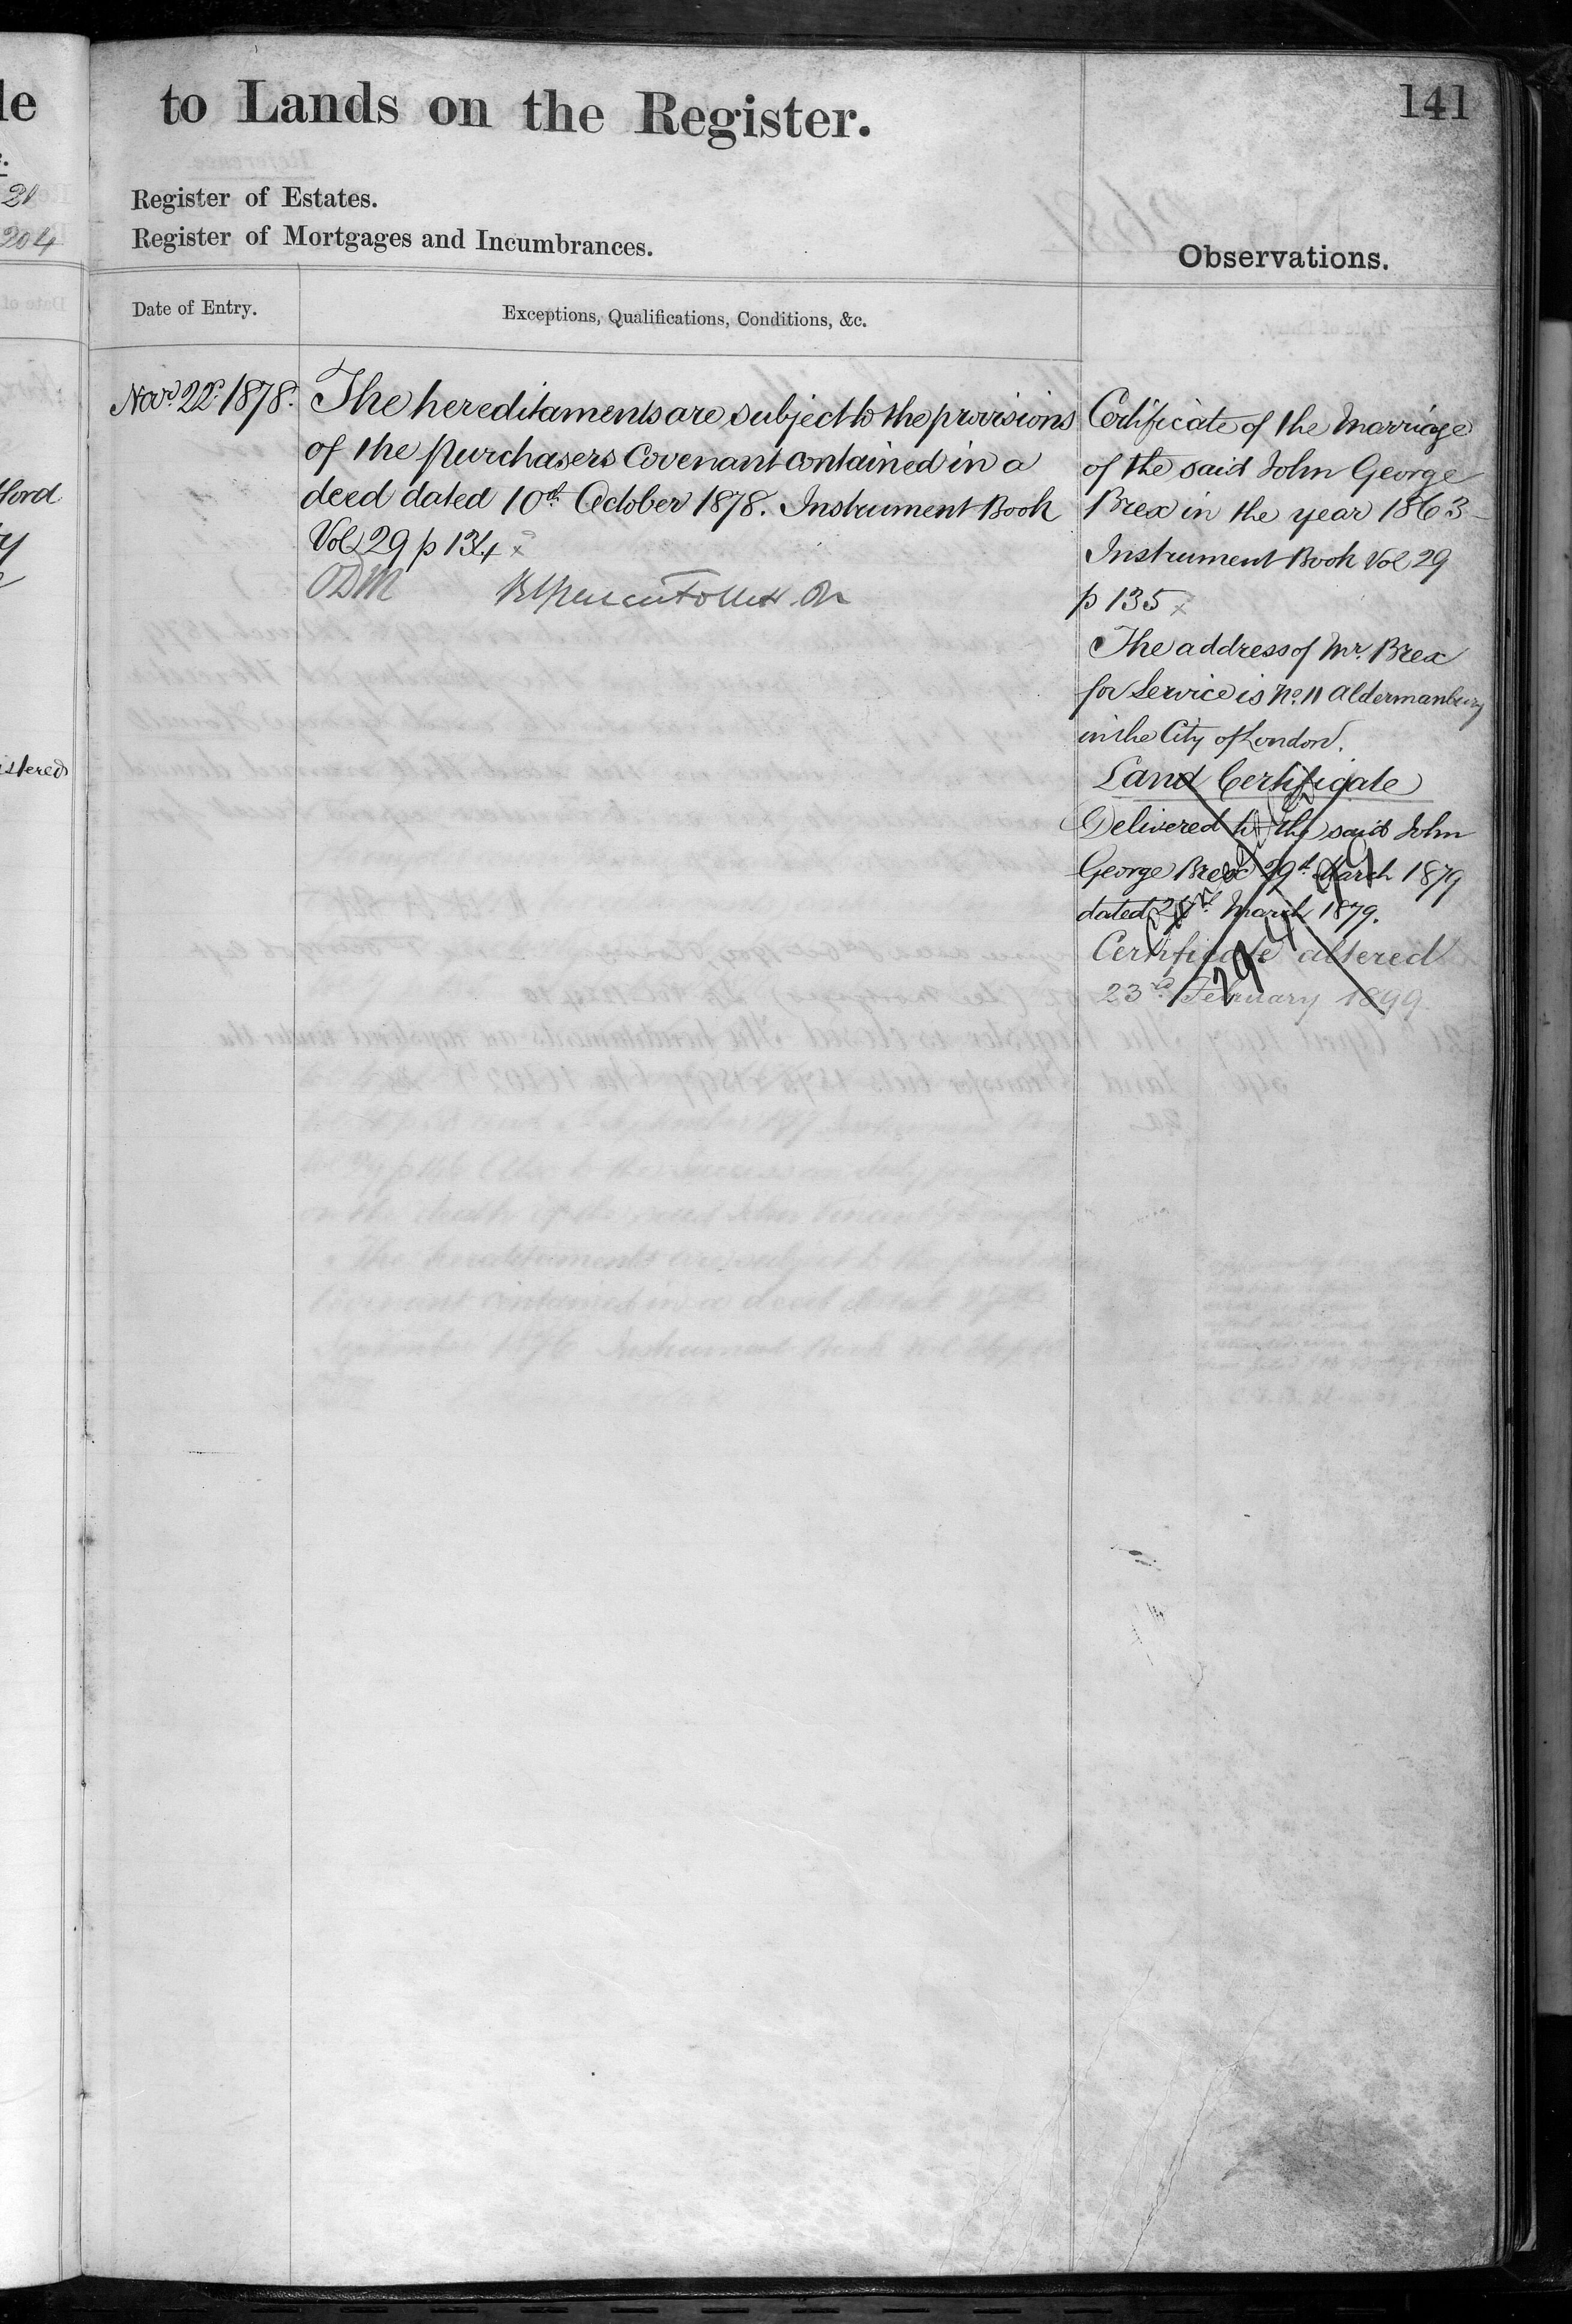 le
21
204
ford
istered
to Lands on the Register.
141
Register of Estates.
Register of Mortgages and Incumbrances.
Observations.
Date of Entry.
Exceptions, Qualifications, Conditions, &c.
Novr. 22d. 1878.
The hereditaments are subject to the provisions
of the purchasers Covenant contained in a
deed dated 10th October 1878. Instrument Book
Vol 29 p 134
Certificate of the Marriage
of the said John George
Brex in the year 1863
Instrument Book Vol 29
p 135
The address of Mr. Brex
for Service is No. 11 Aldermanbury
in the City of London.
Land Certificate
Delivered to the said John
George Brex 29th March 1879
dated 27th March 1879.
Certificate altered
23rd February 1899